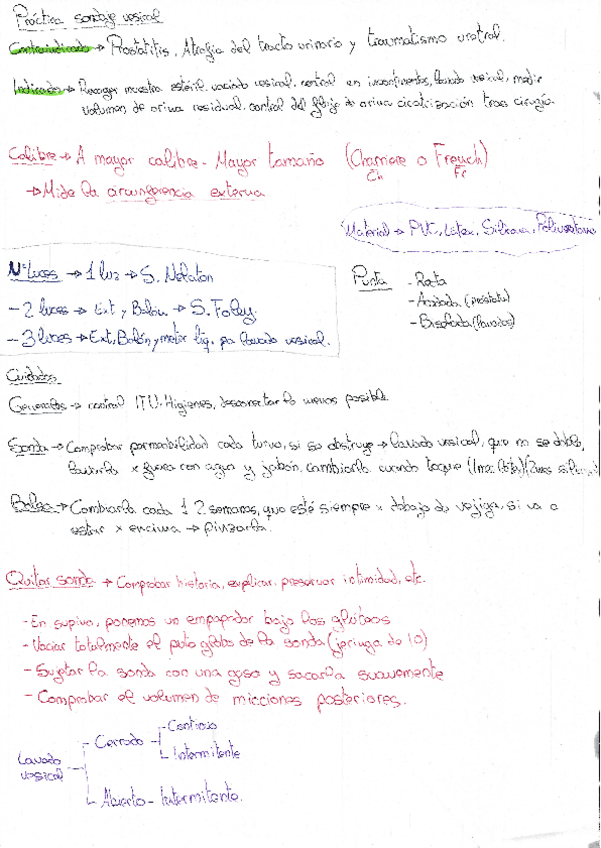 Práctica sondaje vesical
Contraindicado → Prostatitis, Atrofia del tracto urinario y traumatismo uretral.
Indicado → Recoger muestra estéril, vaciado vesical, control en incontinentes, lavado vesical, medir
volumen de orina residual, control del flujo de orina cicatrización tras cirugía.
Calibre → A mayor calibre - Mayor tamaño (Charriere o French)
Ch Fr
→ Mide la circunferencia externa
Material → PVC, Latex, Silicona, Poliuretano
Nº luces → 1 luz → S. Nelaton
- 2 luces → Ext y Balón → S. Foley.
- 3 luces → Ext, Balón y meter líq. pa lavado vesical.
Punta - Recta
- Acodada (próstata)
- Biselada (lavados)
Cuidados
Generales → control ITU. Higienes, desconectar lo menos posible
Sonda → Comprobar permeabilidad cada turno, si se obstruye → lavado vesical, que no se doble,
lavarla x fuera con agua y jabón, cambiarla cuando toque
Bolsa → Cambiarla cada 1 2 semanas, que esté siempre x debajo de vejiga, si va a
estar x encima → pinzarla.
Quitar sonda → Comprobar historia, explicar, preservar intimidad, etc.
- En supino, ponemos un empapador bajo los glúteos
- Vaciar totalmente el globo de la sonda (jeringa de 10)
- Sujetar la sonda con una gasa y sacarla suavemente
- Comprobar el volumen de micciones posteriores.
Lavado vesical
- Cerrado - Continuo
- Intermitente
- Abierto - Intermitente.